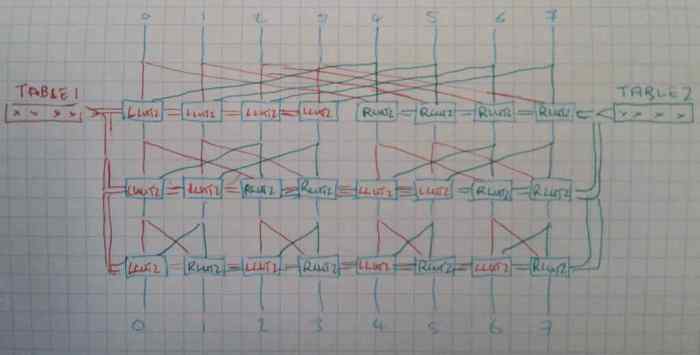 0 1 2 3 4 5 6 7
TABLE1 TABLE2
x x x x LLUT2 LLUT2 LLUT2 LLUT2 RLUT2 RLUT2 RLUT2 RLUT2 x x x x
LLUT2 LLUT2 RLUT2 RLUT2 LLUT2 LLUT2 RLUT2 RLUT2
LLUT2 RLUT2 LLUT2 RLUT2 LLUT2 RLUT2 LLUT2 RLUT2
0 1 2 3 4 5 6 7